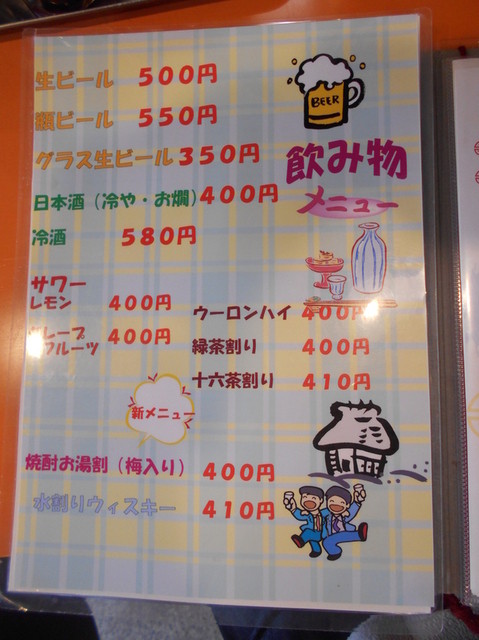 生ビール 500円
瓶ビール 550円
グラス生ビール 350円
BEER
飲み物
メニュー
日本酒（冷や・お燗） 400円
冷酒 580円
サワー
レモン 400円
グレープ
フルーツ 400円
ウーロンハイ 400円
緑茶割り 400円
十六茶割り 410円
新メニュー
焼酎お湯割（梅入り） 400円
水割りウィスキー 410円